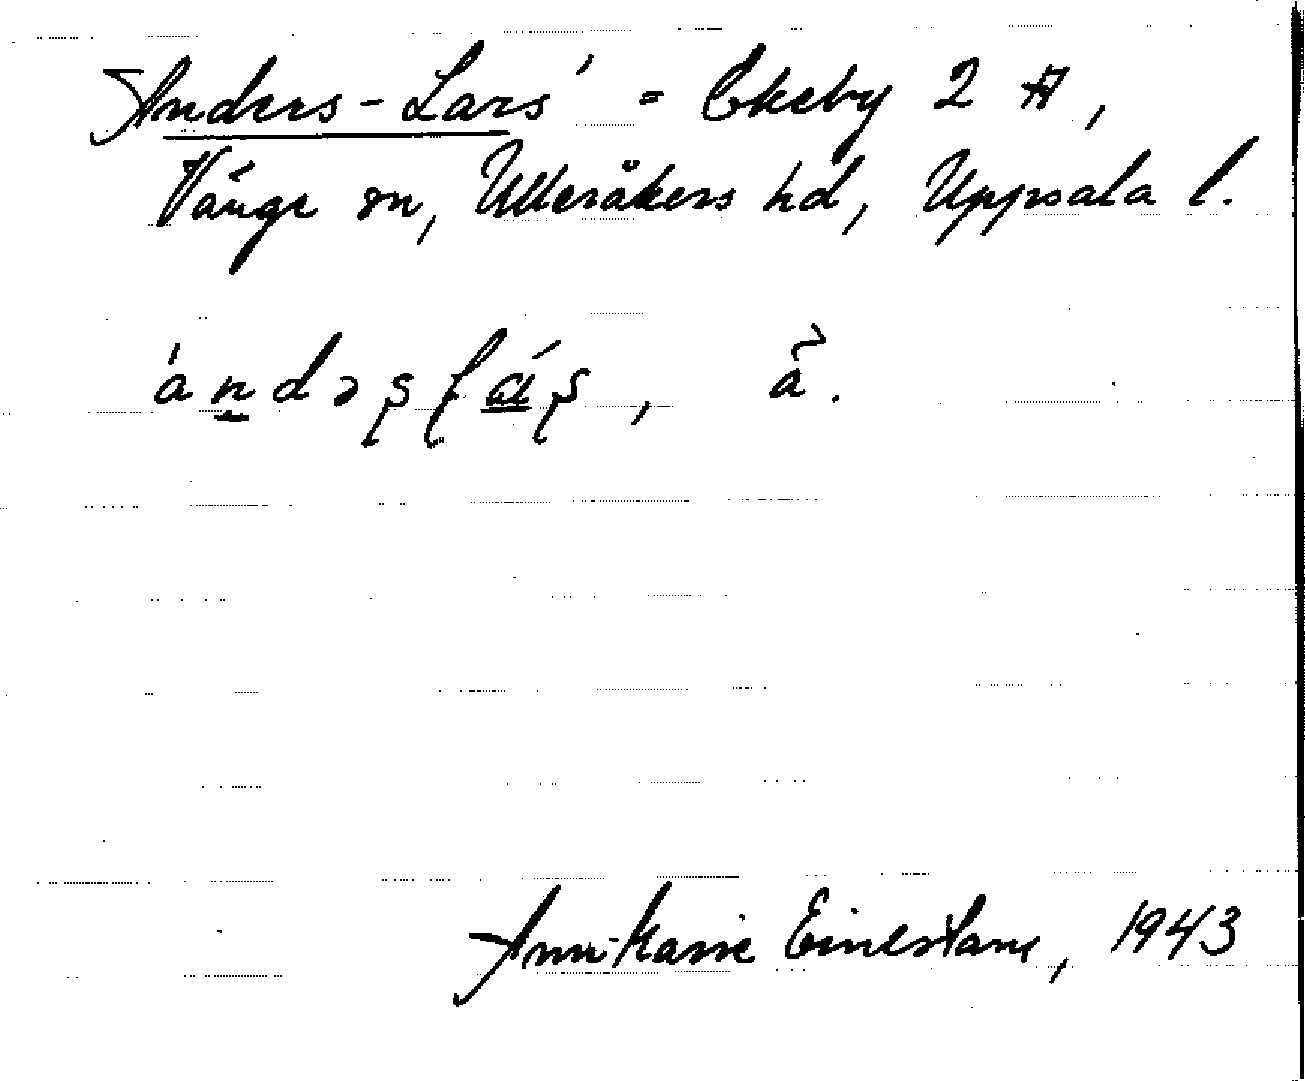 Anders-Lars' = Ekeby 2 A,
Vänge sn, Ulleråkers hd, Uppsala l.
ándəʂɭáʂ, ã.
Ann-Marie Einerstam, 1943